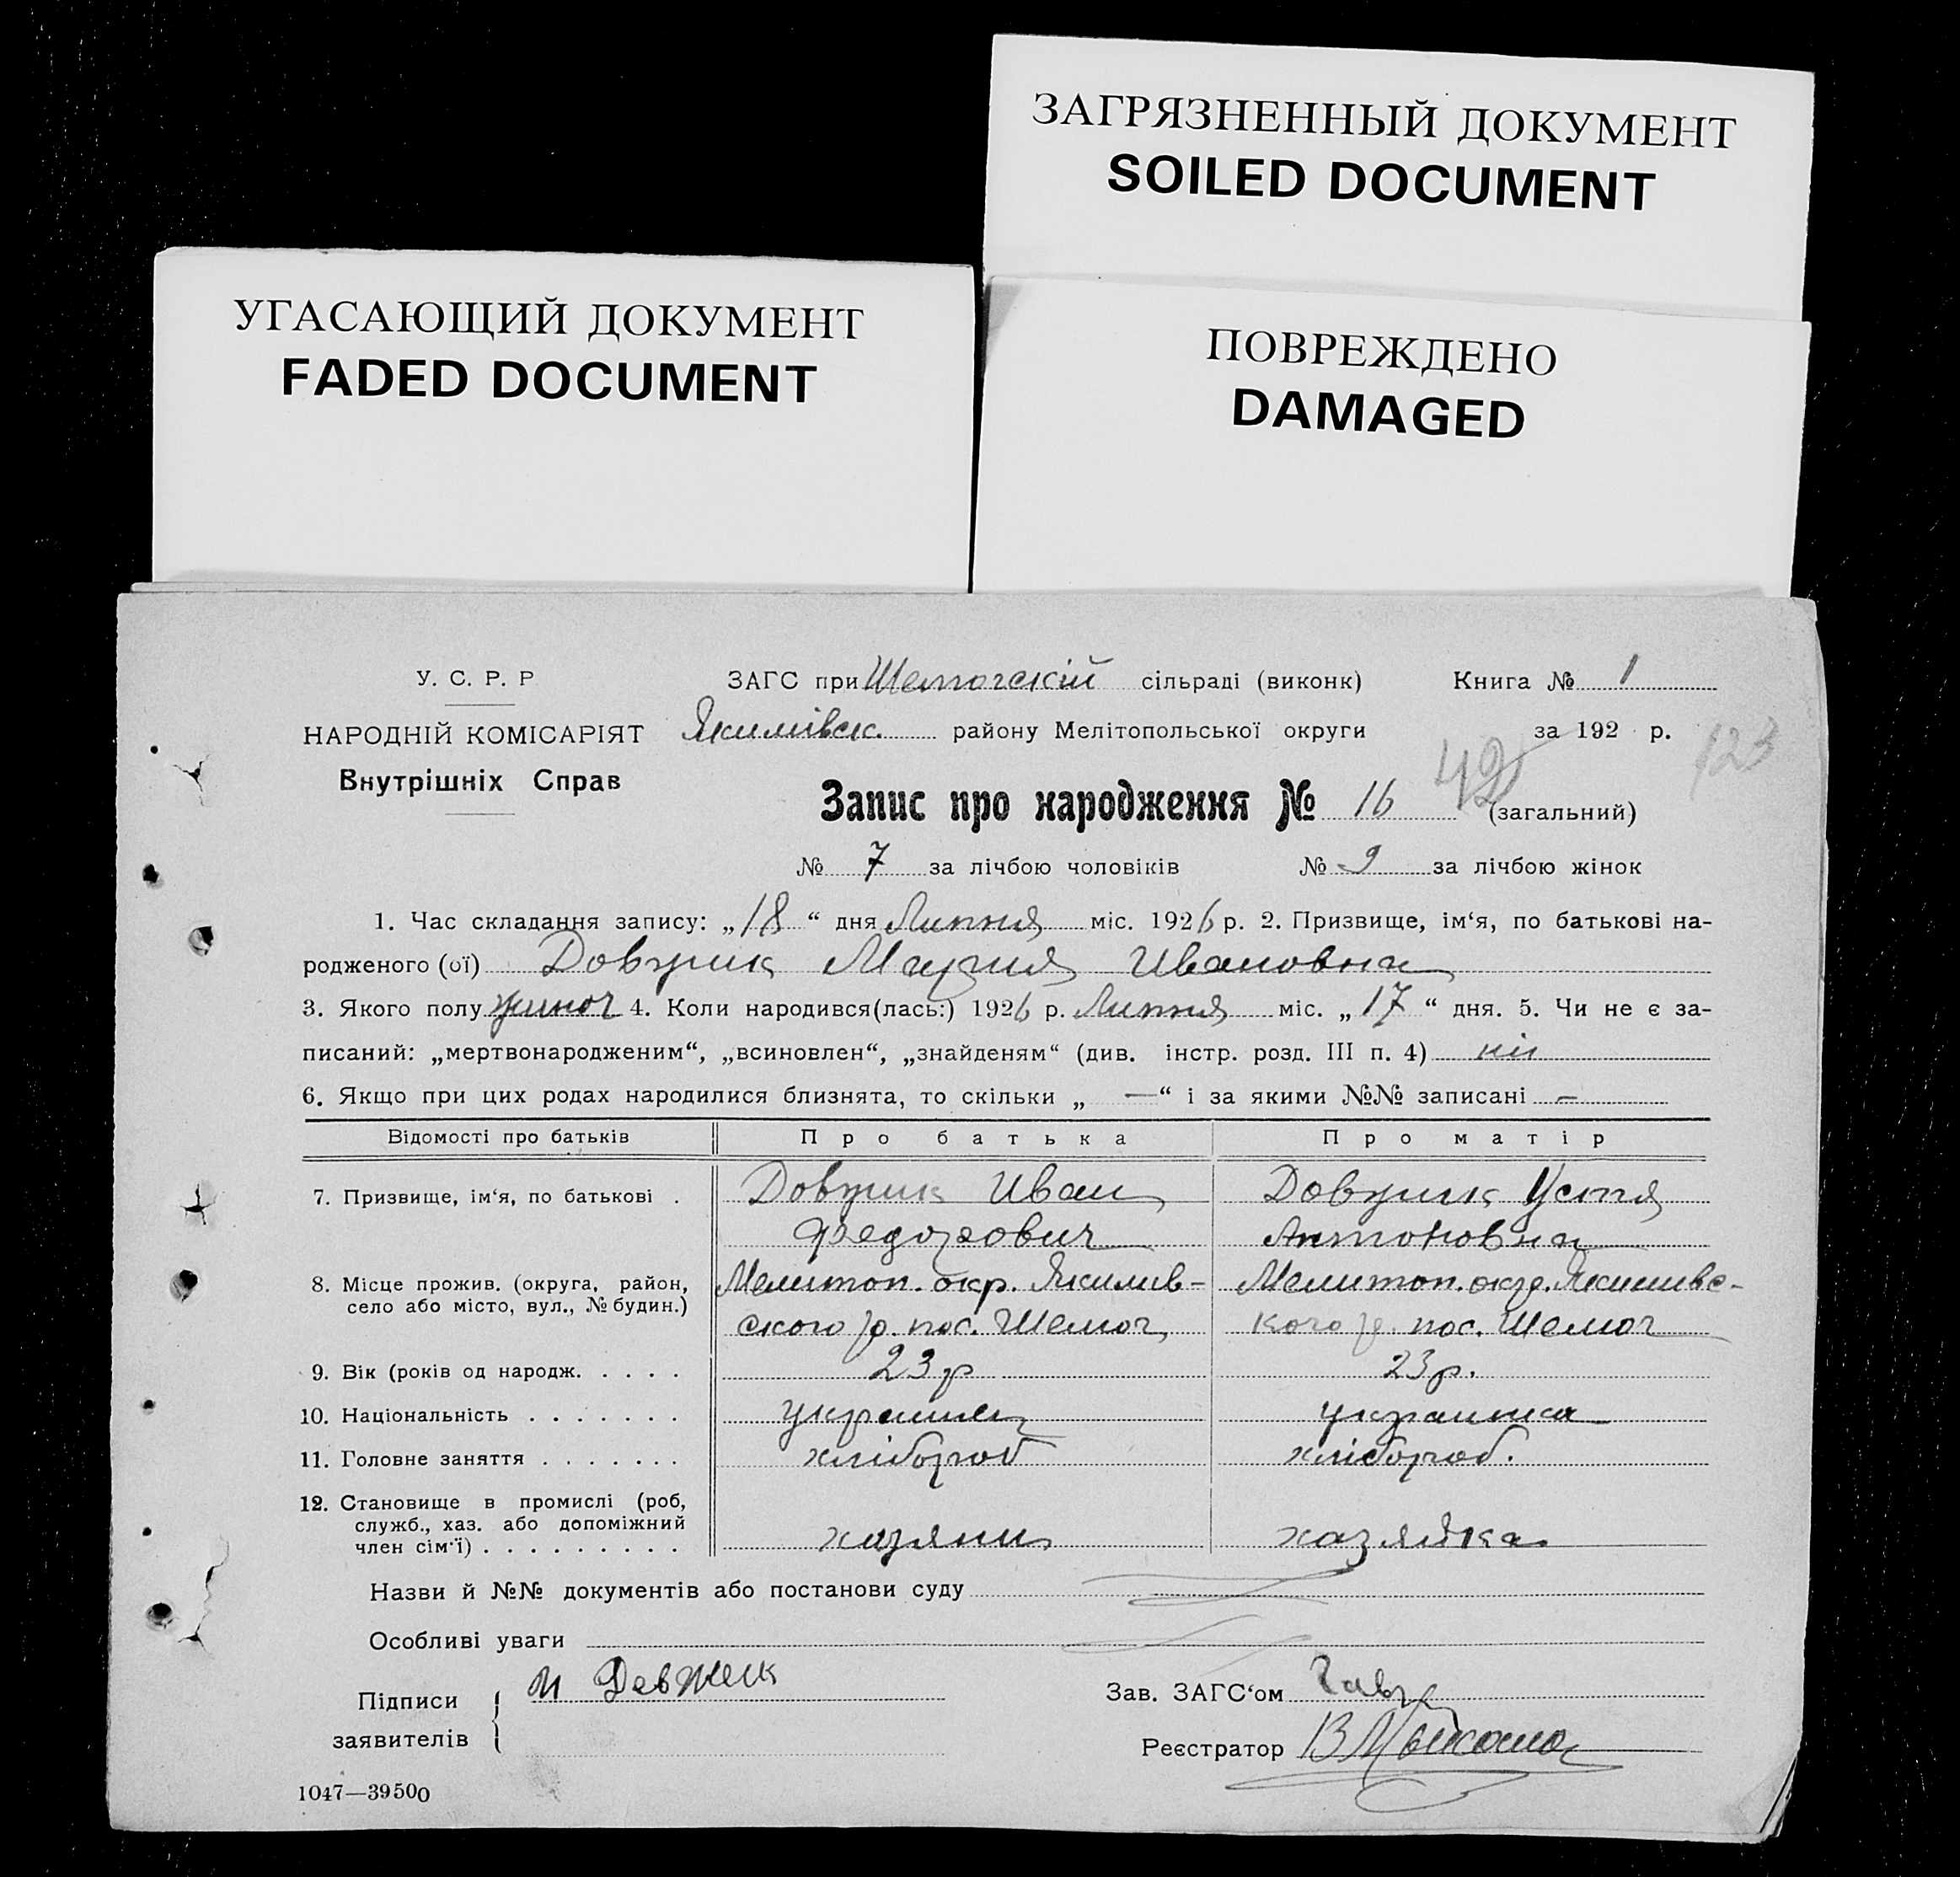 ЗАГРЯЗНЕННЫЙ ДОКУМЕНТ
SOILED DOCUMENT
УГАСАЮЩИЙ ДОКУМЕНТ
FADED DOCUMENT
ПОВРЕЖДЕНО
DAMAGED
У. С. Р. Р
НАРОДНІЙ КОМІСАРІЯТ
Внутрішніх Справ
ЗАГС при сільраді (виконк) Книга № 1
Якимівск. району Мелітопольської округи за 192 р.
42 123
Запис про народження № 16 (загальний)
№ 7 за лічбою чоловіків № 9 за лічбою жінок
1. Час складання запису: „18“ дня Липня міс. 1926 р. 2. Призвище, ім‘я, по батькові на-
родженого (ої) Довжик Мария Ивановна
3. Якого полу жиноч 4. Коли народився(лась:) 1926 р. Липня міс. „17“ дня. 5. Чи не є за-
писаний: „мертвонародженим“, „всиновлен“, „знайденям“ (див. інстр. розд. III п. 4) ні
6. Якщо при цих родах народилися близнята, то скільки „—“ і за якими №№ записані —
Відомості про батьків Про батька Про матір
7. Призвище, ім‘я, по батькові . Довжик Иван Довжик Устя
Федорович Антоновна
8. Місце прожив. (округа, район, Мелитоп. окр. Якимив- Мелитоп. окр. Якимивс-
село або місто, вул., № будин.) ского р. пос. Шелюг кого р. пос. Шелюг
9. Вік (років од народж. . . . . 23 р 23 р.
10. Національність . . . . . . . украинец украинка
11. Головне заняття . . . . . . . хлібороб хлібороб.
12. Становище в промислі (роб,
служб., хаз. або допоміжний
член сім‘ї) . . . . . . . . . хазяин хазяйка
Назви й №№ документів або постанови суду
Особливі уваги
Підписи И Девжик Зав. ЗАГС‘ом
заявителів
Реєстратор
1047—39500